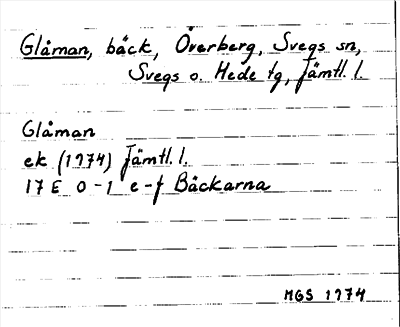 Glåman, bäck, Överberg, Svegs sn,
Svegs o. Hede tg, Jämtl. l.
Glåman
ek (1974) Jämtl. l.
17 E 0-1 e-f Bäckarna
MGS 1974